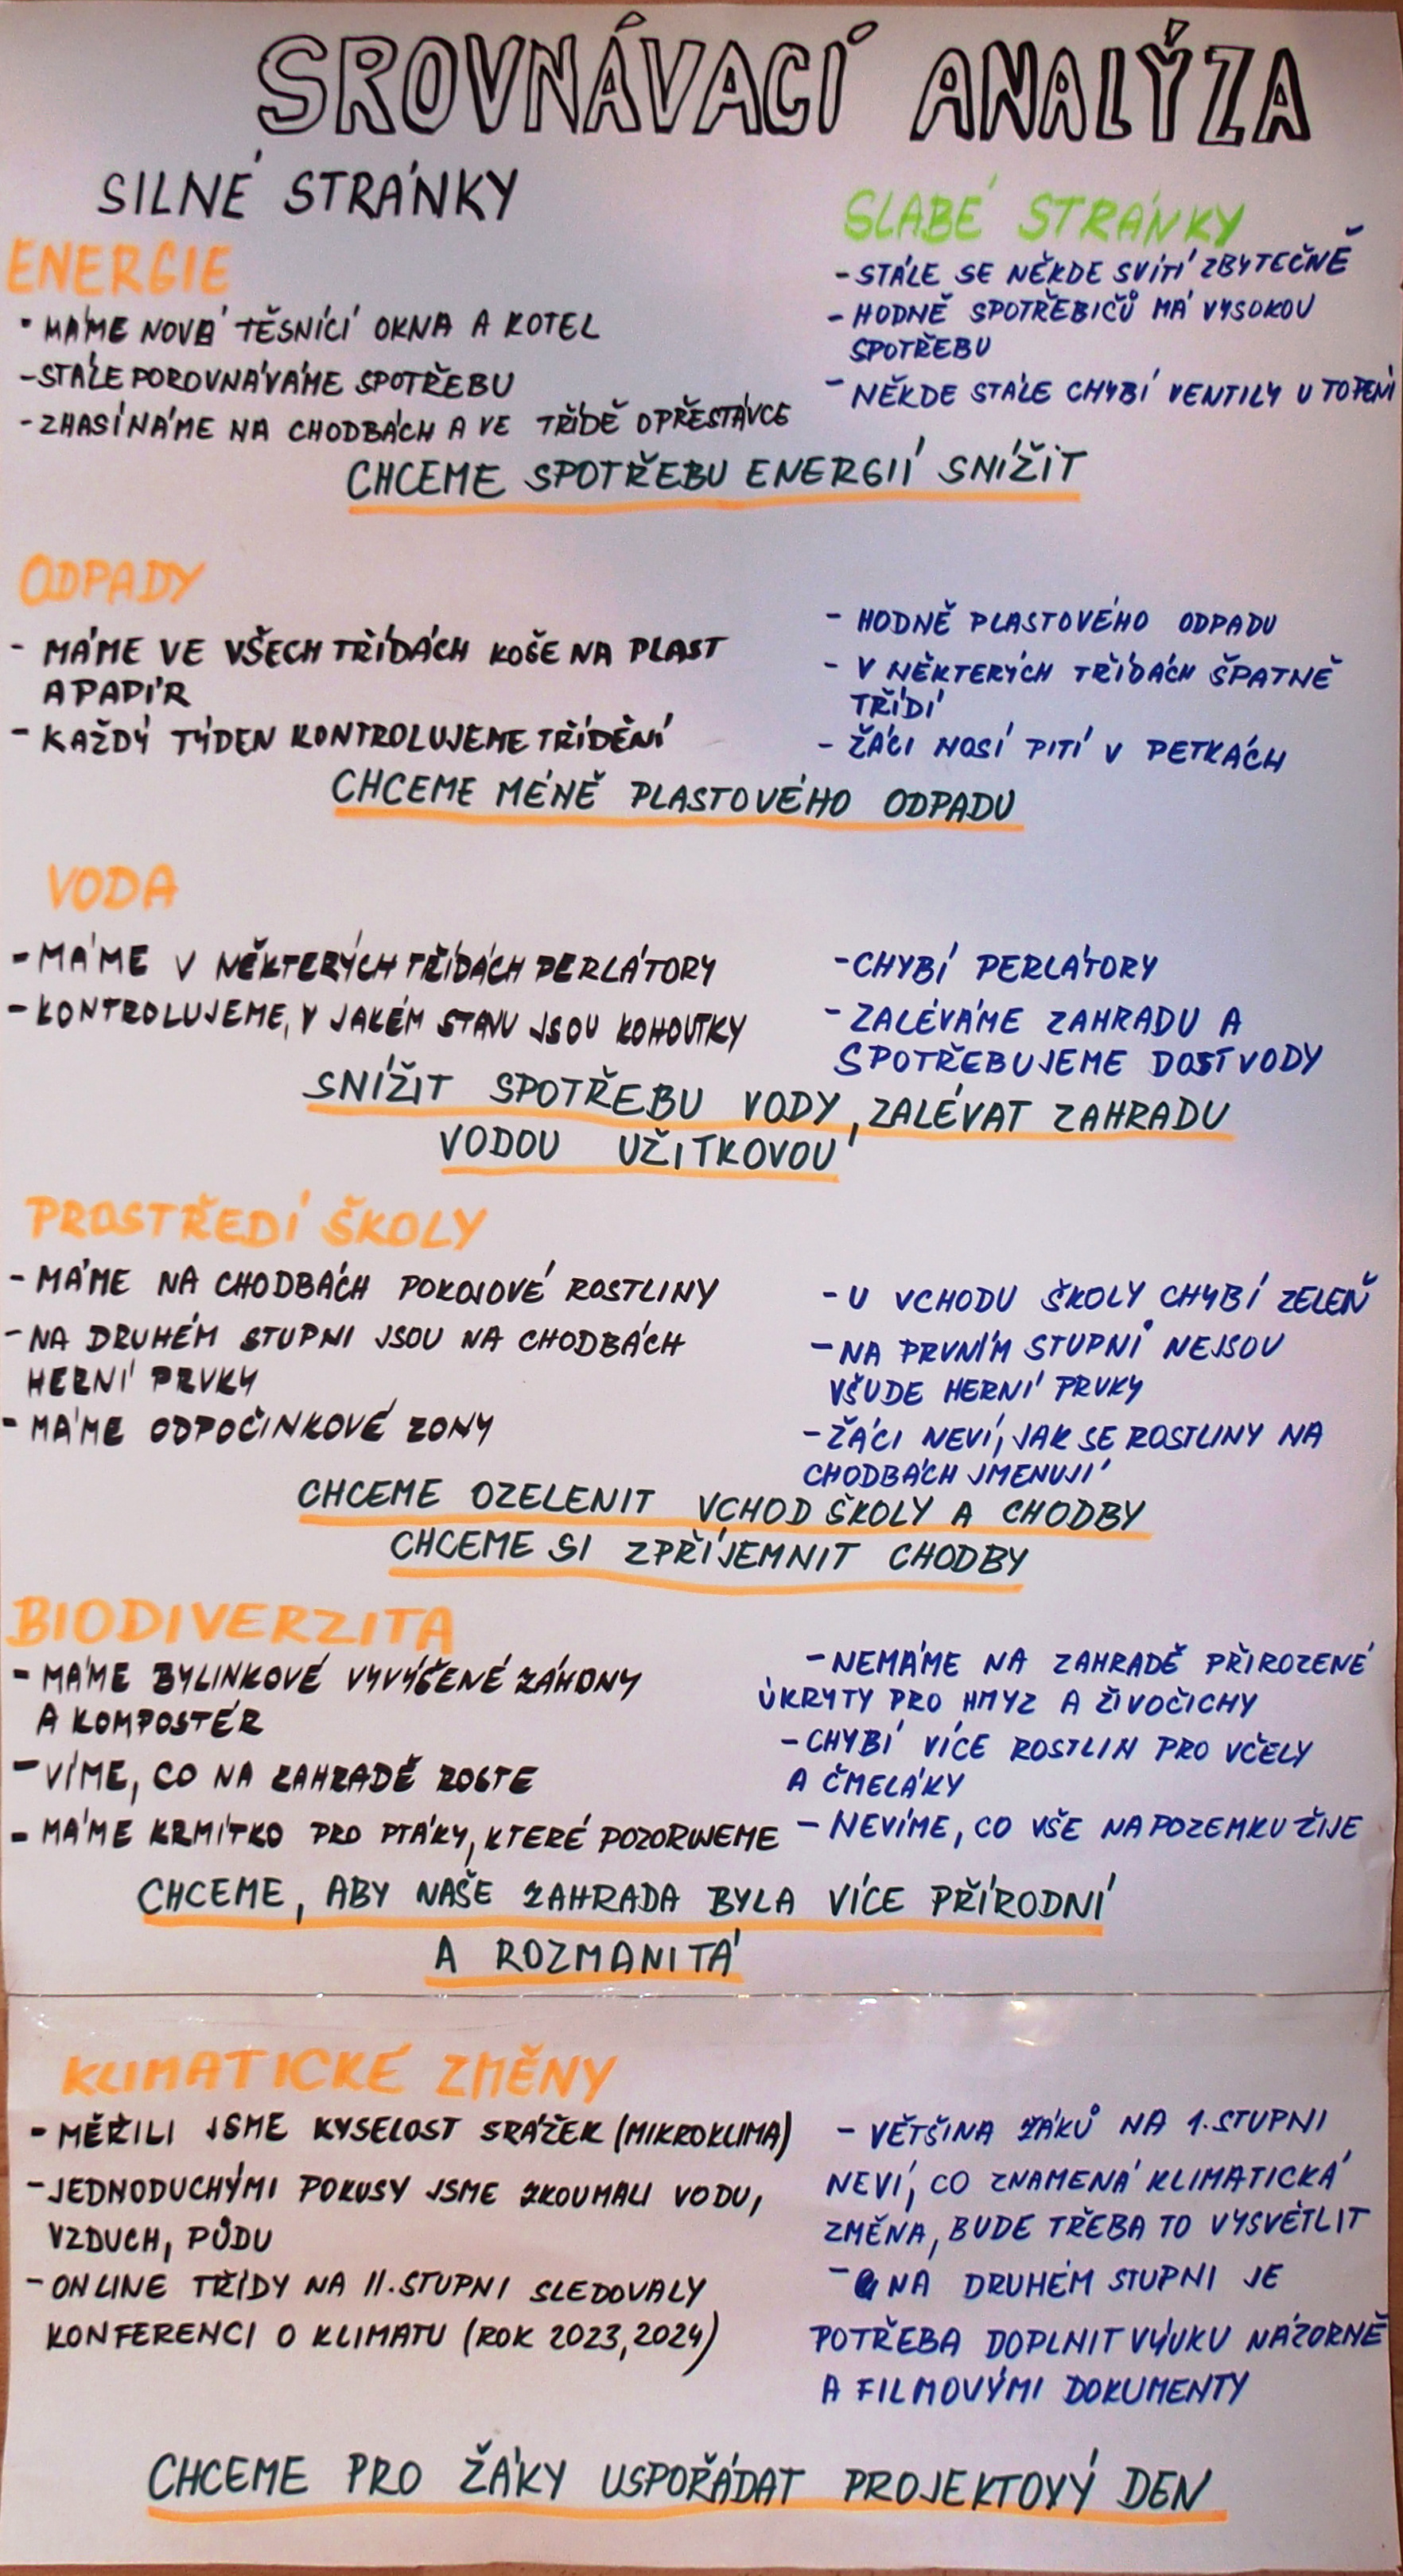 SROVNÁVACÍ ANALÝZA
SILNÉ STRÁNKY
SLABÉ STRÁNKY
ENERGIE
- MÁME NOVÁ TĚSNÍCÍ OKNA A KOTEL
- STÁLE POROVNÁVÁME SPOTŘEBU
- ZHASÍNÁME NA CHODBÁCH A VE TŘÍDĚ O PŘESTÁVCE
- STÁLE SE NĚKDE SVÍTÍ ZBYTEČNĚ
- HODNĚ SPOTŘEBIČŮ MÁ VYSOKOU
SPOTŘEBU
- NĚKDE STÁLE CHYBÍ VENTILY U TOPENÍ
CHCEME SPOTŘEBU ENERGIÍ SNÍŽIT
ODPADY
- MÁME VE VŠECH TŘÍDÁCH KOŠE NA PLAST
A PAPÍR
- KAŽDÝ TÝDEN KONTROLUJEME TŘÍDĚNÍ
- HODNĚ PLASTOVÉHO ODPADU
- V NĚKTERÝCH TŘÍDÁCH ŠPATNĚ
TŘÍDÍ
- ŽÁCI NOSÍ PITÍ V PETKÁCH
CHCEME MÉNĚ PLASTOVÉHO ODPADU
VODA
- MÁME V NĚKTERÝCH TŘÍDÁCH PERLÁTORY
- KONTROLUJEME, V JAKÉM STAVU JSOU KOHOUTKY
- CHYBÍ PERLÁTORY
- ZALÉVÁME ZAHRADU A
SPOTŘEBUJEME DOST VODY
SNÍŽIT SPOTŘEBU VODY, ZALÉVAT ZAHRADU
VODOU UŽITKOVOU
PROSTŘEDÍ ŠKOLY
- MÁME NA CHODBÁCH POKOJOVÉ ROSTLINY
- NA DRUHÉM STUPNI JSOU NA CHODBÁCH
HERNÍ PRVKY
- MÁME ODPOČINKOVÉ ZONY
- U VCHODU ŠKOLY CHYBÍ ZELEŇ
- NA PRVNÍM STUPNI NEJSOU
VŠUDE HERNÍ PRVKY
- ŽÁCI NEVÍ, JAK SE ROSTLINY NA
CHODBÁCH JMENUJÍ
CHCEME OZELENIT VCHOD ŠKOLY A CHODBY
CHCEME SI ZPŘÍJEMNIT CHODBY
BIODIVERZITA
- MÁME BYLINKOVÉ VYVÝŠENÉ ZÁHONY
A KOMPOSTÉR
- VÍME, CO NA ZAHRADĚ ROSTE
- MÁME KRMÍTKO PRO PTÁKY, KTERÉ POZORUJEME
- NEMÁME NA ZAHRADĚ PŘIROZENÉ
ÚKRYTY PRO HMYZ A ŽIVOČICHY
- CHYBÍ VÍCE ROSTLIN PRO VČELY
A ČMELÁKY
- NEVÍME, CO VŠE NA POZEMKU ŽIJE
CHCEME, ABY NAŠE ZAHRADA BYLA VÍCE PŘÍRODNÍ
A ROZMANITÁ
KLIMATICKÉ ZMĚNY
- MĚŘILI JSME KYSELOST SRÁŽEK (MIKROKLIMA)
- JEDNODUCHÝMI POKUSY JSME ZKOUMALI VODU,
VZDUCH, PŮDU
- ONLINE TŘÍDY NA II. STUPNI SLEDOVALY
KONFERENCI O KLIMATU (ROK 2023, 2024)
- VĚTŠINA ŽÁKŮ NA 1. STUPNI
NEVÍ, CO ZNAMENÁ KLIMATICKÁ
ZMĚNA, BUDE TŘEBA TO VYSVĚTLIT
- NA DRUHÉM STUPNI JE
POTŘEBA DOPLNIT VÝUKU NÁZORNĚ
A FILMOVÝMI DOKUMENTY
CHCEME PRO ŽÁKY USPOŘÁDAT PROJEKTOVÝ DEN